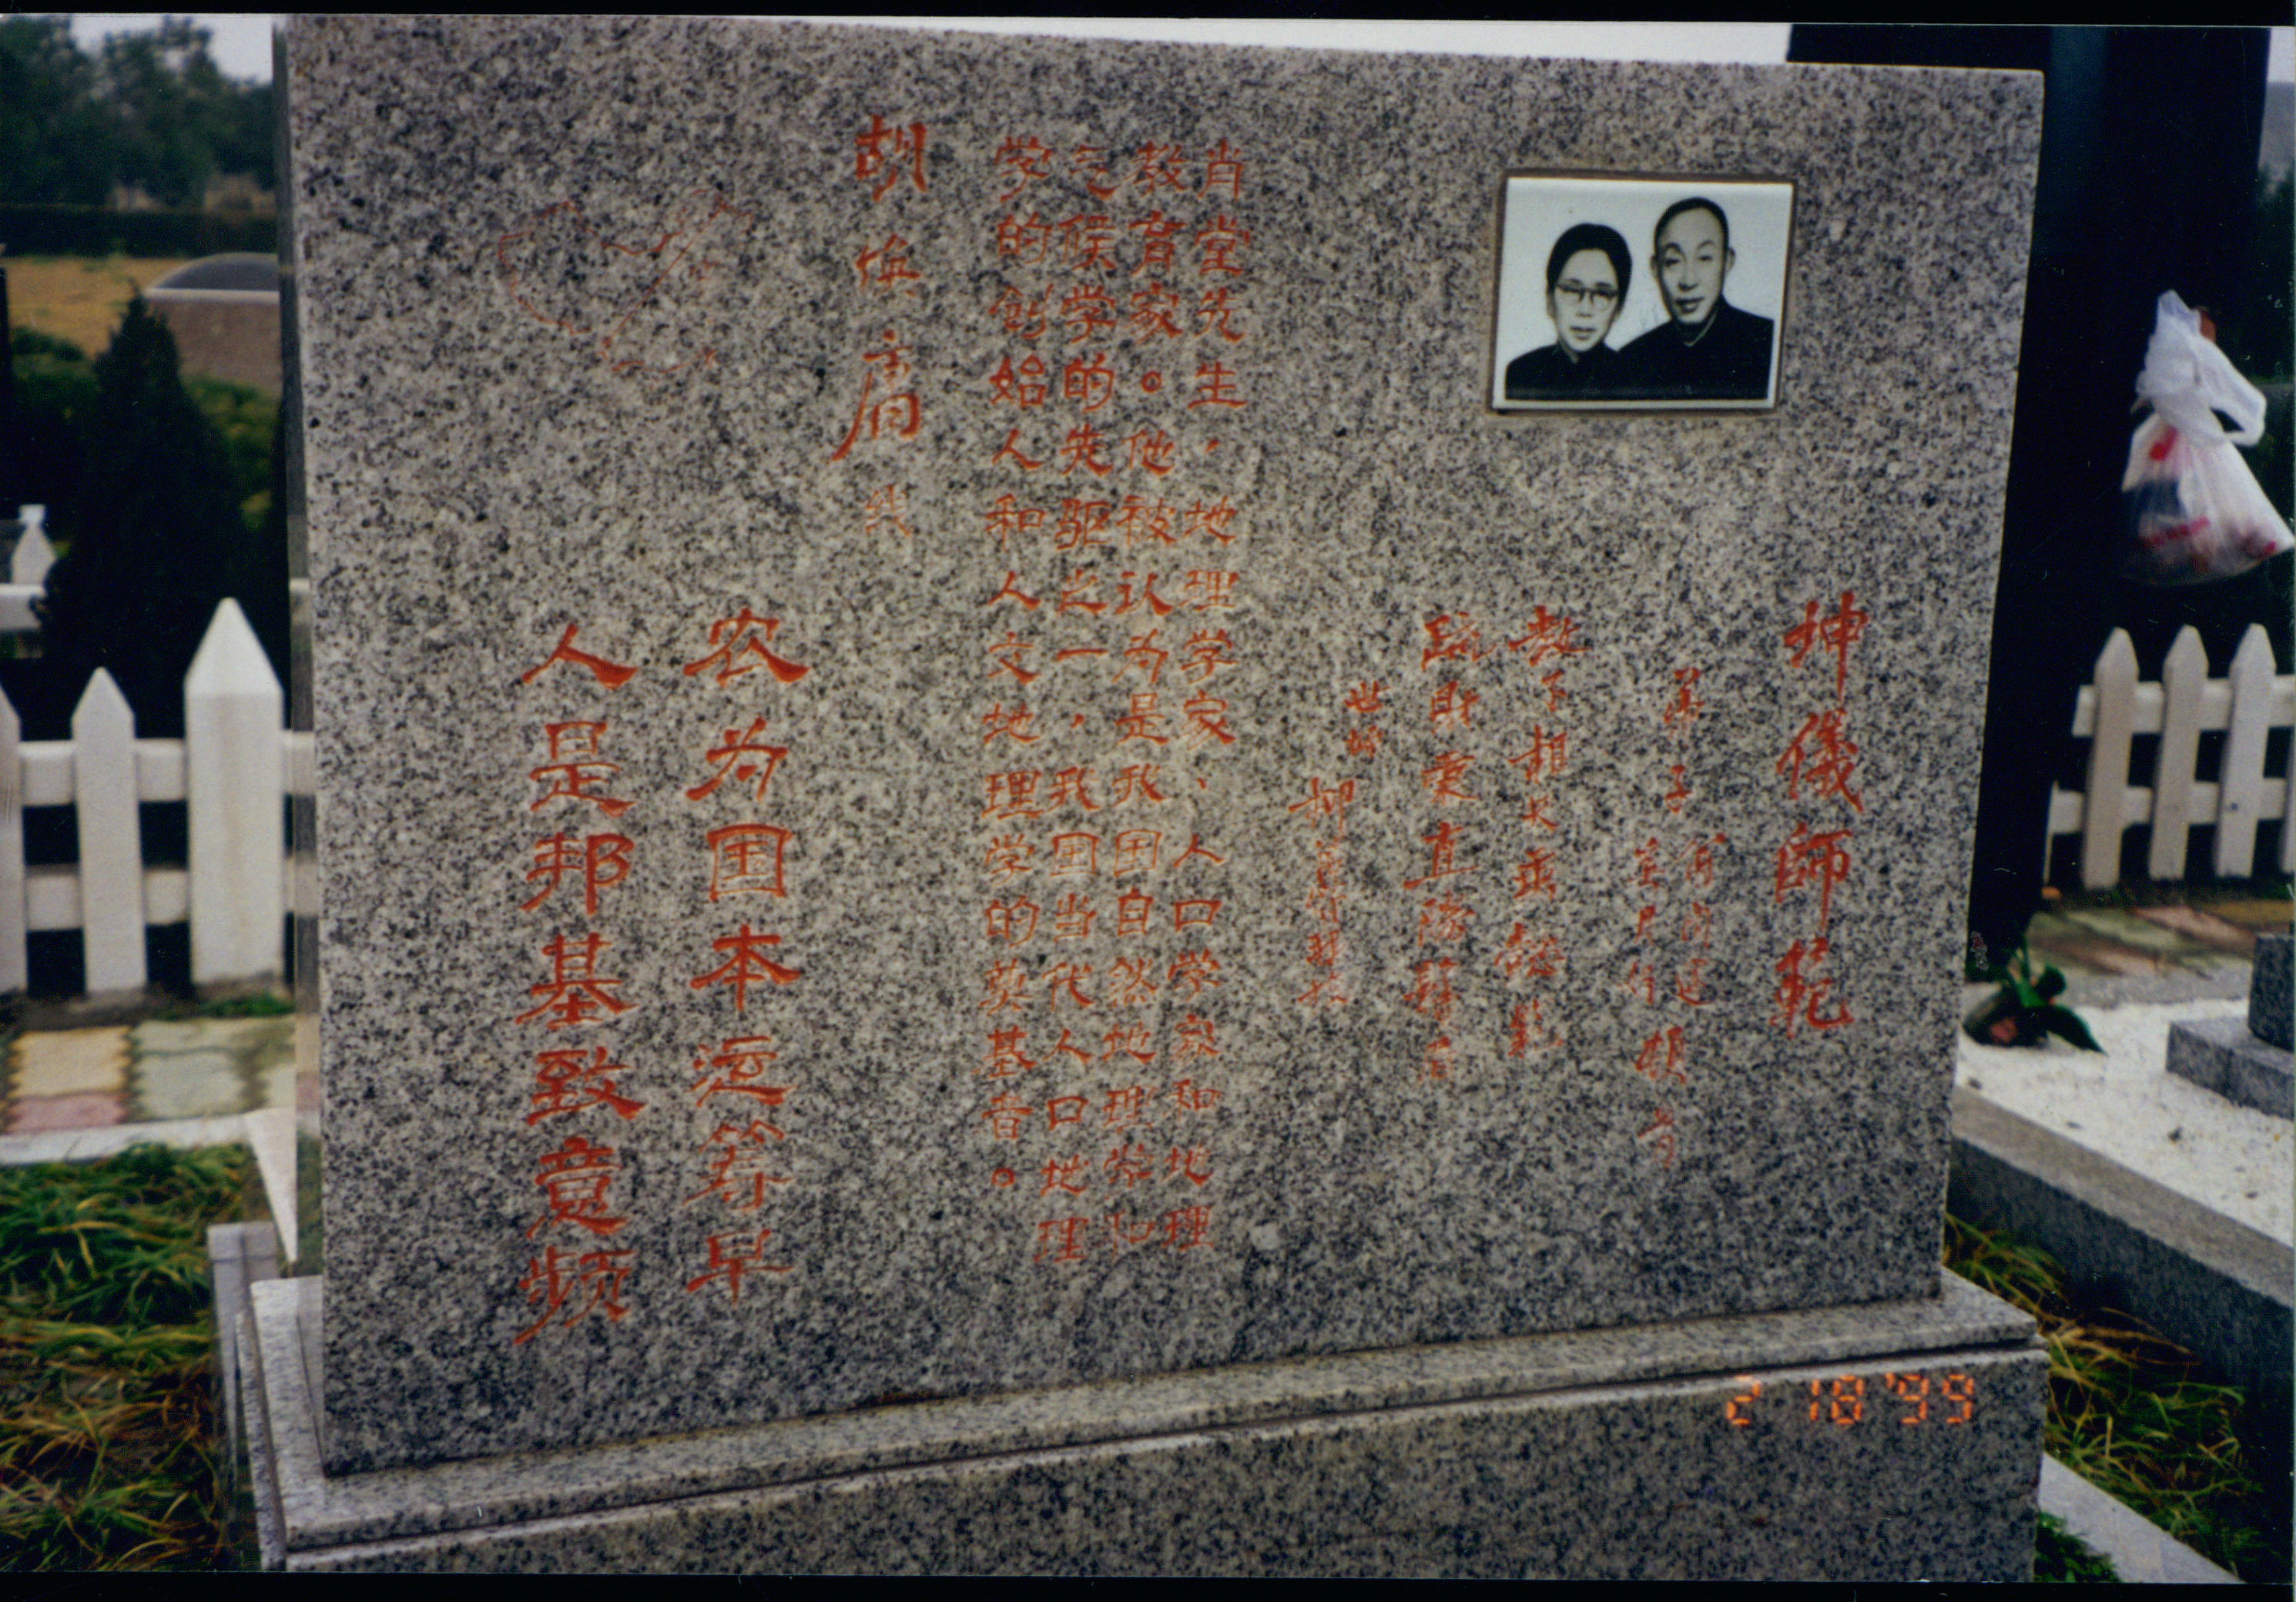 坤儀師範
弟子
頓首
教子相夫垂懿範
疏財重直蔭賢后
世侄
肖堂先生，地理学家、人口学家和地理
教育家。他被认为是我国自然地理学和
气候学的先驱之一，我国当代人口地理
学的创始人和人文地理学的奠基者。
胡焕庸线
农为国本运筹早
人是邦基致意频
2 18 '99